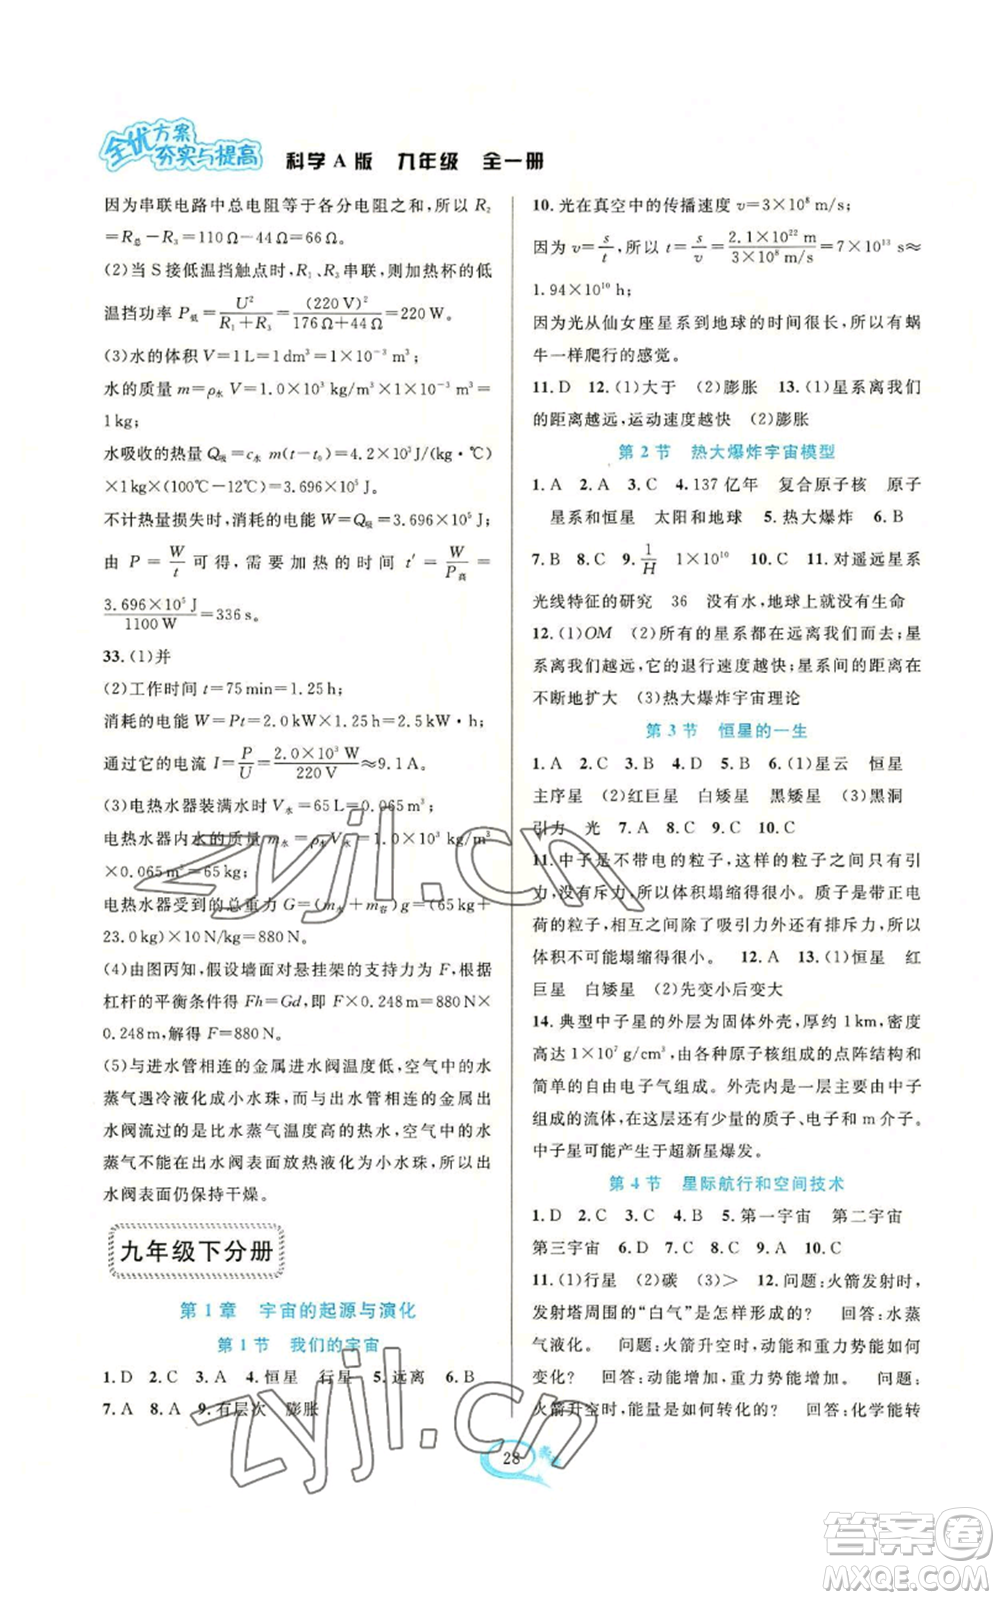 全优方案
夯实与提高 科学 A 版 九年级 全一册
因为串联电路中总电阻等于各分电阻之和,所以 R₂
=R总-R₃=110 Ω-44 Ω=66 Ω。
(2)当 S 接低温挡触点时,R₁、R₃ 串联,则加热杯的低
温挡功率 P低=U²/(R₁+R₃)=(220 V)²/(176 Ω+44 Ω)=220 W。
(3)水的体积 V=1 L=1 dm³=1×10⁻³ m³;
水的质量 m=ρ水 V=1.0×10³ kg/m³×1×10⁻³ m³=
1 kg;
水吸收的热量 Q吸=c水 m(t-t₀)=4.2×10³ J/(kg·
℃)×1 kg×(100℃-12℃)=3.696×10⁵ J;
不计热量损失时,消耗的电能 W=Q吸=3.696×10⁵ J,
由 P=W/t 可得,需要加热的时间 t′=W/P高=
3.696×10⁵ J/1100 W=336 s。
33. (1)并
(2)工作时间 t=75 min=1.25 h;
消耗的电能 W=Pt=2.0 kW×1.25 h=2.5 kW·h;
通过它的电流 I=P/U=2.0×10³ W/220 V≈9.1 A。
(3)电热水器装满水时 V水=65 L=0.065 m³;
电热水器内水的质量 m水=ρ水V水=1.0×10³ kg/m³
×0.065 m³=65 kg;
电热水器受到的总重力 G=(m水+m容)g=(65 kg+
23.0 kg)×10 N/kg=880 N。
(4)由图丙知,假设墙面对悬挂架的支持力为 F,根据
杠杆的平衡条件得 Fh=Gd,即 F×0.248 m=880 N×
0.248 m,解得 F=880 N。
(5)与进水管相连的金属进水阀温度低,空气中的水
蒸气遇冷液化成小水珠,而与出水管相连的金属出
水阀流过的是比水蒸气温度高的热水,空气中的水
蒸气不能在出水阀表面放热液化为小水珠,所以出
水阀表面仍保持干燥。
九年级下分册
第 1 章 宇宙的起源与演化
第 1 节 我们的宇宙
1. D 2. C 3. A 4. 恒星 行星 5. 远离 6. B
7. A 8. A 9. 有层次 膨胀
10. 光在真空中的传播速度 v=3×10⁸ m/s;
因为 v=s/t,所以 t=s/v=2.1×10²² m/3×10⁸ m/s=7×10¹³ s≈
1.94×10¹⁰ h;
因为光从仙女座星系到地球的时间很长,所以有蜗
牛一样爬行的感觉。
11. D 12. (1)大于 (2)膨胀 13. (1)星系离我们
的距离越远,运动速度越快 (2)膨胀
第 2 节 热大爆炸宇宙模型
1. A 2. A 3. C 4. 137 亿年 复合原子核 原子
星系和恒星 太阳和地球 5. 热大爆炸 6. B
7. B 8. C 9. 1/H 1×10¹⁰ 10. C 11. 对遥远星系
光线特征的研究 36 没有水,地球上就没有生命
12. (1)OM (2)所有的星系都在远离我们而去;星
系离我们越远,它的退行速度越快;星系间的距离在
不断地扩大 (3)热大爆炸宇宙理论
第 3 节 恒星的一生
1. A 2. C 3. B 4. D 5. B 6. (1)星云 恒星
主序星 (2)红巨星 白矮星 黑矮星 (3)黑洞
引力 光 7. A 8. C 9. C 10. C
11. 中子是不带电的粒子,这样的粒子之间只有引
力,没有斥力,所以体积塌缩得很小。质子是带正电
荷的粒子,由于除了吸引力外还有排斥力,所以星球
体积不可能塌缩得很小。 12. A 13. (1)恒星 红
巨星 白矮星 (2)先变小后变大
14. 典型中子星的外层为固体外壳,厚约 1 km,密度
高达 1×10⁷ g/cm³,由各种原子核组成的点阵结构和
简单的自由电子气组成。外壳内是一层主要由中子
组成的流体,在这层还有少量的质子、电子和 m 介子。
中子星可能产生于超新星爆发。
第 4 节 星际航行和空间技术
1. D 2. C 3. C 4. B 5. 第一宇宙 第二宇宙
第三宇宙 6. D 7. A 8. B 9. C 10. D
11. (1)行星 (2)碳 (3)> 12. 问题:火箭发射时,
发射塔周围的“白气”是怎样形成的? 回答:水蒸
气液化。 问题:火箭升空时,动能和重力势能如何
变化? 回答:动能增加,重力势能增加。 问题:
火箭升空时,能量是如何转化的? 回答:化学能转
28
zyjl.cn
zyjl.cn
答案圈
MXQE.COM